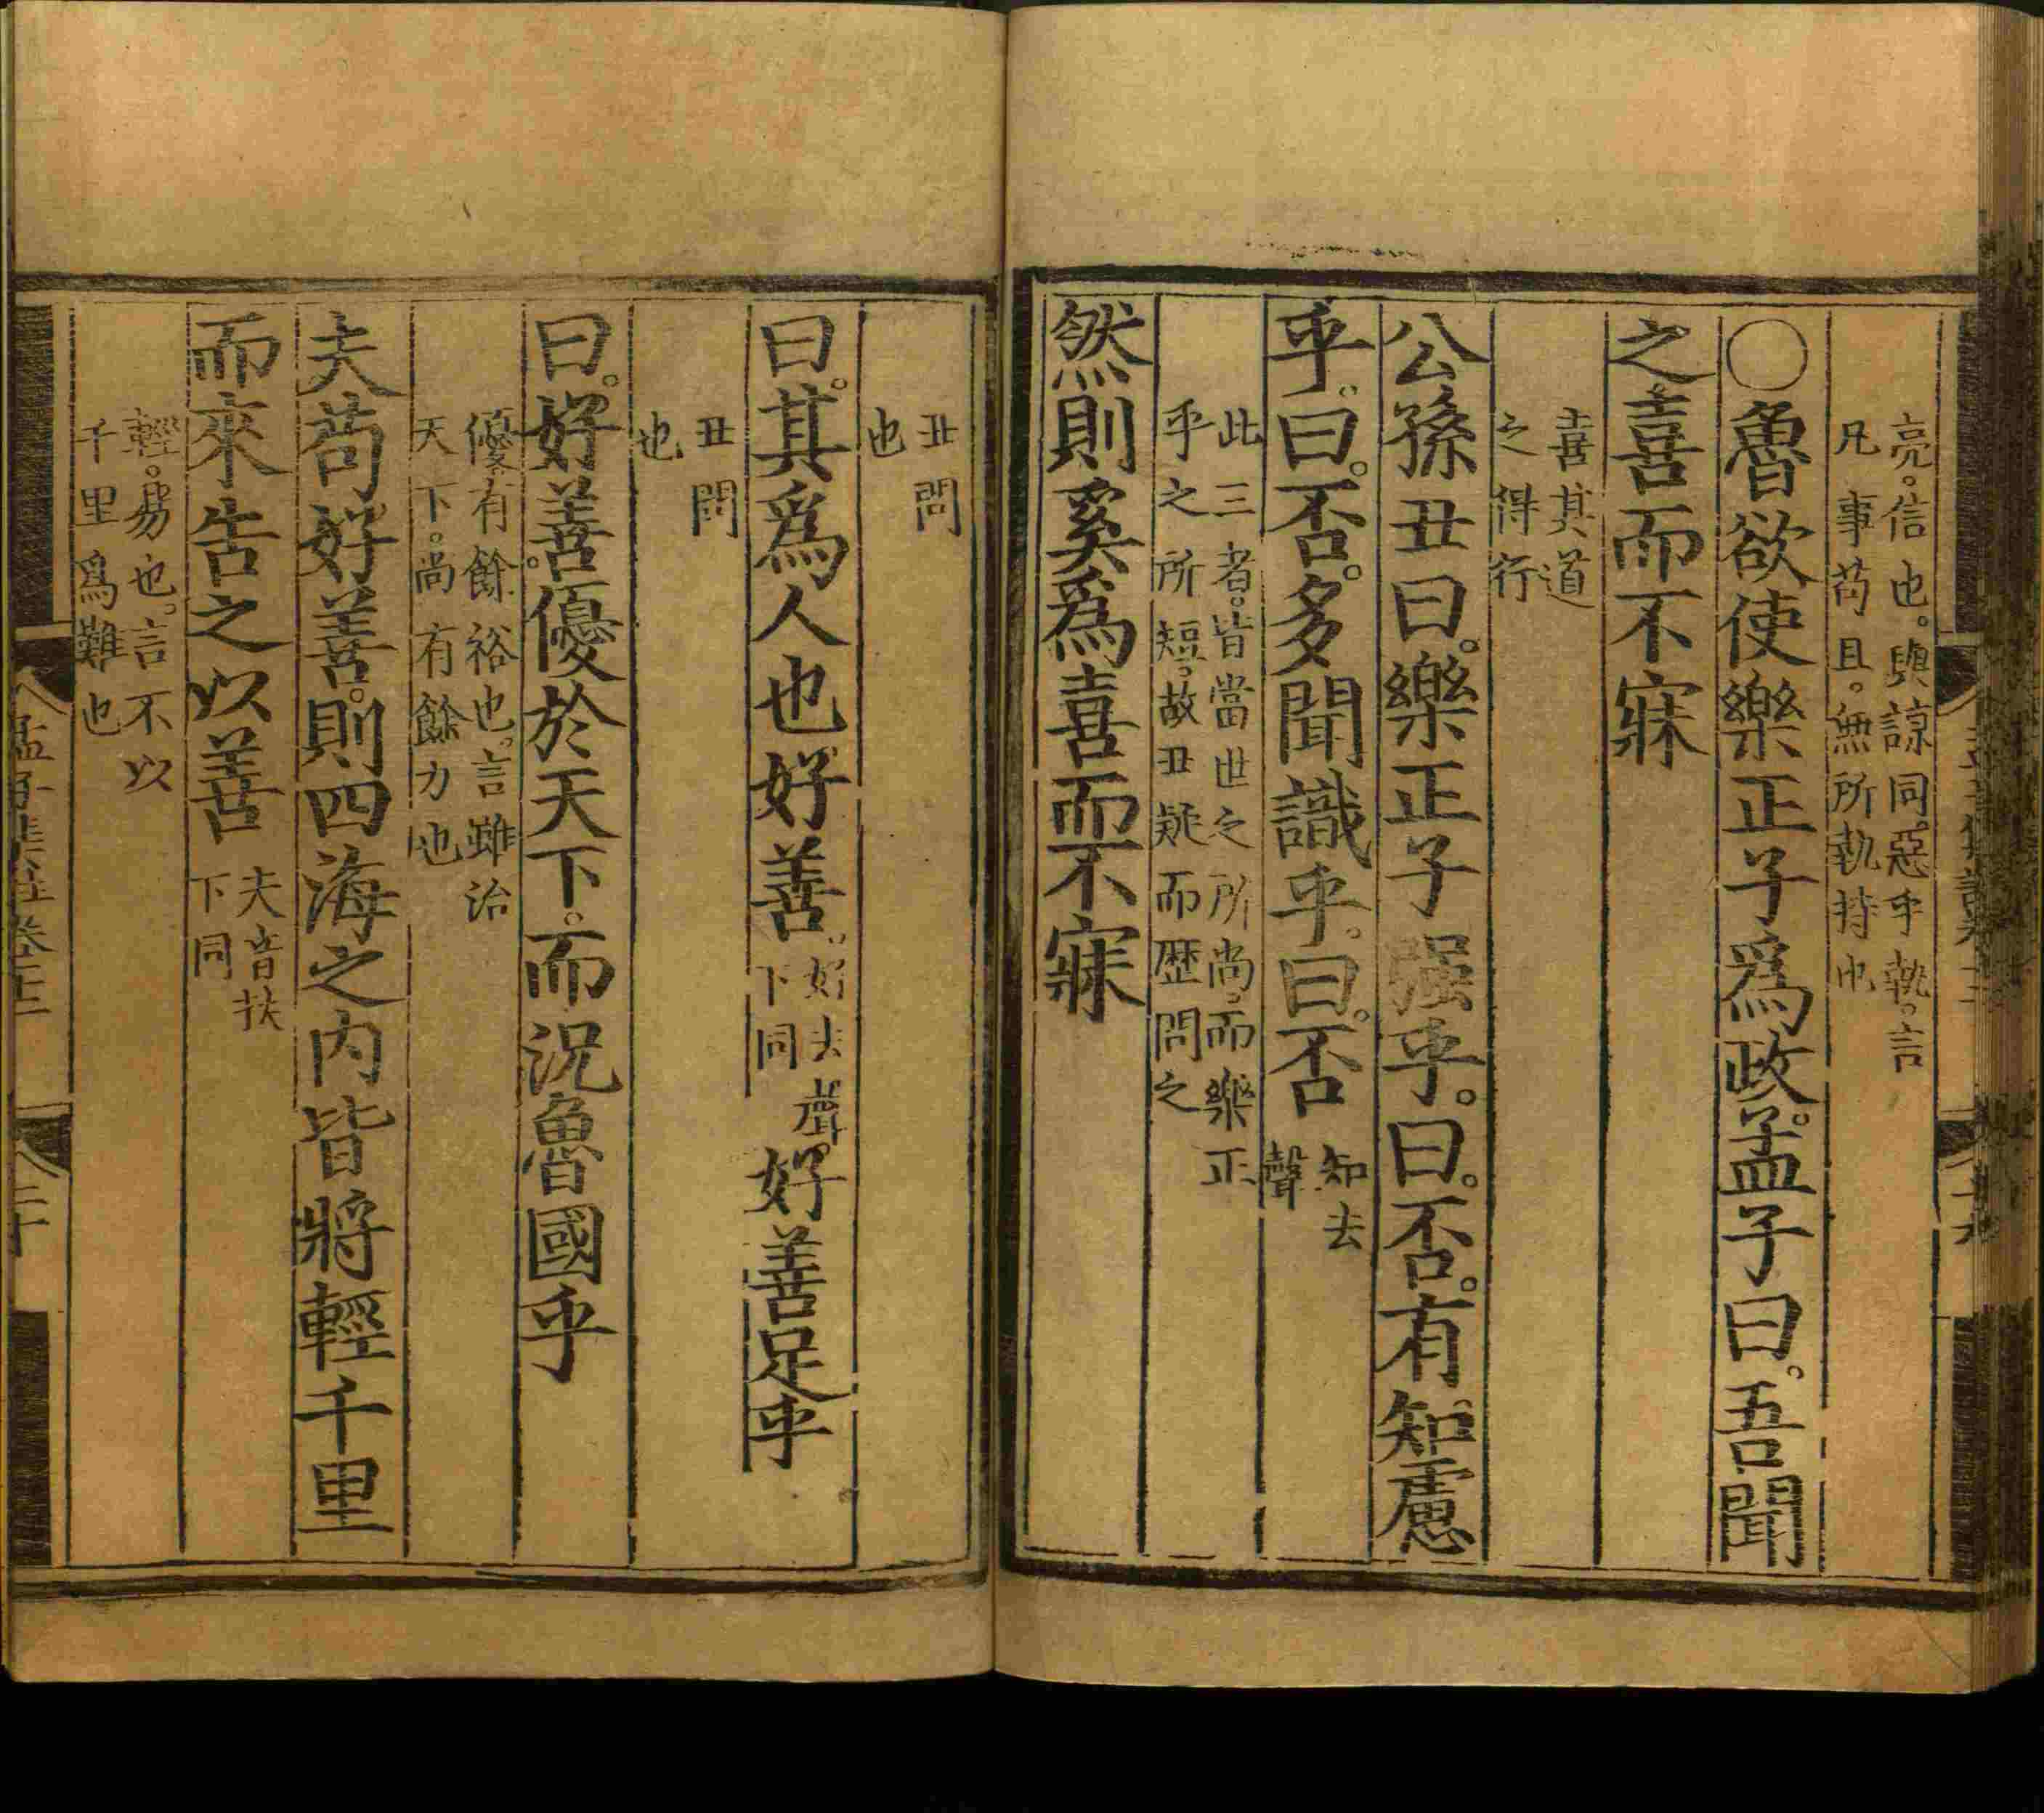 亮。信也。與諒同。惡乎執。言
凡事苟且。無所執持也
○魯欲使樂正子爲政。孟子曰。吾聞
之。喜而不寐
喜其道
之得行
公孫丑曰。樂正子强乎。曰。否。有知慮
乎。曰。否。多聞識乎。曰。否
知去
聲
此三者。皆當世之所尚。而樂正
乎之所短。故丑疑而歷問之
然則奚爲喜而不寐
丑問
也
曰。其爲人也好善。
好去聲。
下同
好善足乎
丑問
也
曰。好善。優於天下。而況魯國乎
優。有餘裕也。言雖治
天下。尚有餘力也
夫苟好善。則四海之內皆將輕千里
而來告之以善
夫音扶
下同
輕。易也。言不以
千里爲難也
孟子集註卷三
二十